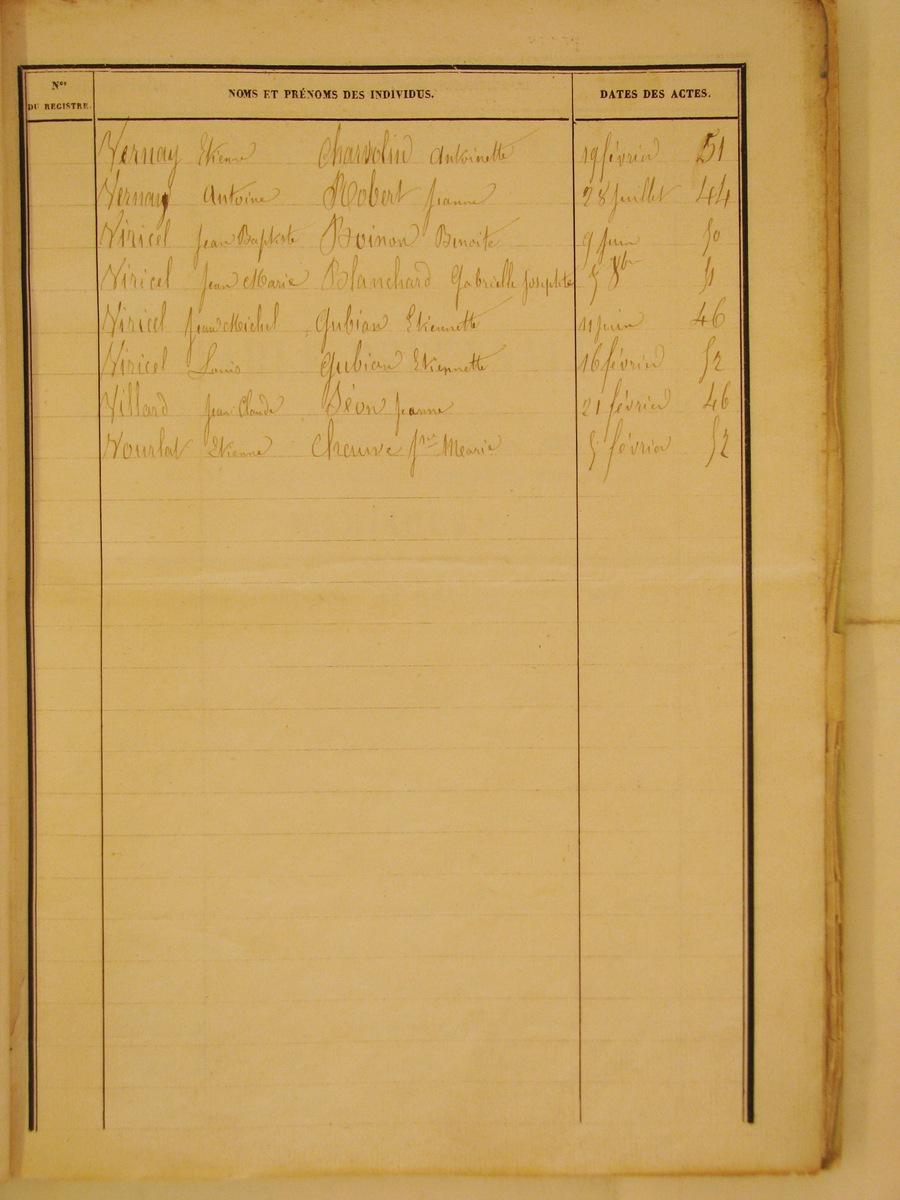 Nos DU REGISTRE. NOMS ET PRÉNOMS DES INDIVIDUS. DATES DES ACTES.
Vernay Etienne Charvolin Antoinette 19 février 51
Vernay Antoine Robert Jeanne 28 juillet 44
Viricel Jean Baptiste Boinon Benoite 9 juin 50
Viricel Jean Marie Blanchard Gabrielle Josephte 5 8bre 51
Viricel Jean Michel Gubian Etiennette 11 juin 46
Viricel Louis Gubian Etiennette 16 février 52
Villard Jean Claude Séon Jeanne 21 février 46
Vourlat Etienne Jne Marie 5 février 52